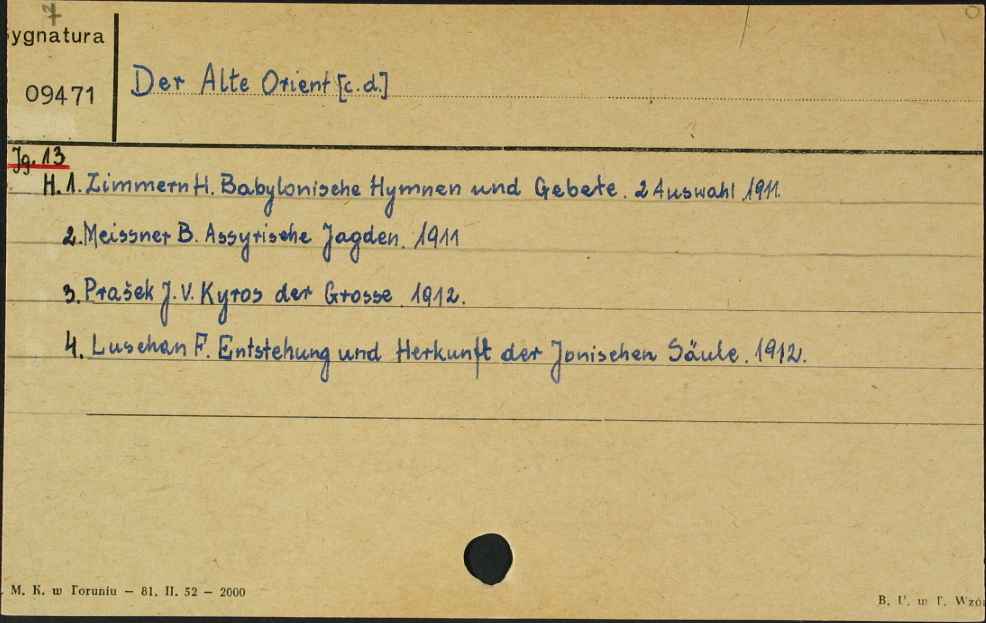 7
Sygnatura
09471
Der Alte Orient [c.d.]
Jg. 13
H. 1. Zimmern H. Babylonische Hymnen und Gebete. 2 Auswahl 1911.
2. Meissner B. Assyrische Jagden. 1911
3. Prašek J. V. Kyros der Grosse. 1912.
4. Luschan F. Entstehung und Herkunft der Jonischen Säule. 1912.
M. K. w Toruniu — 81. II. 52 — 2000
B. U. w T. Wzór